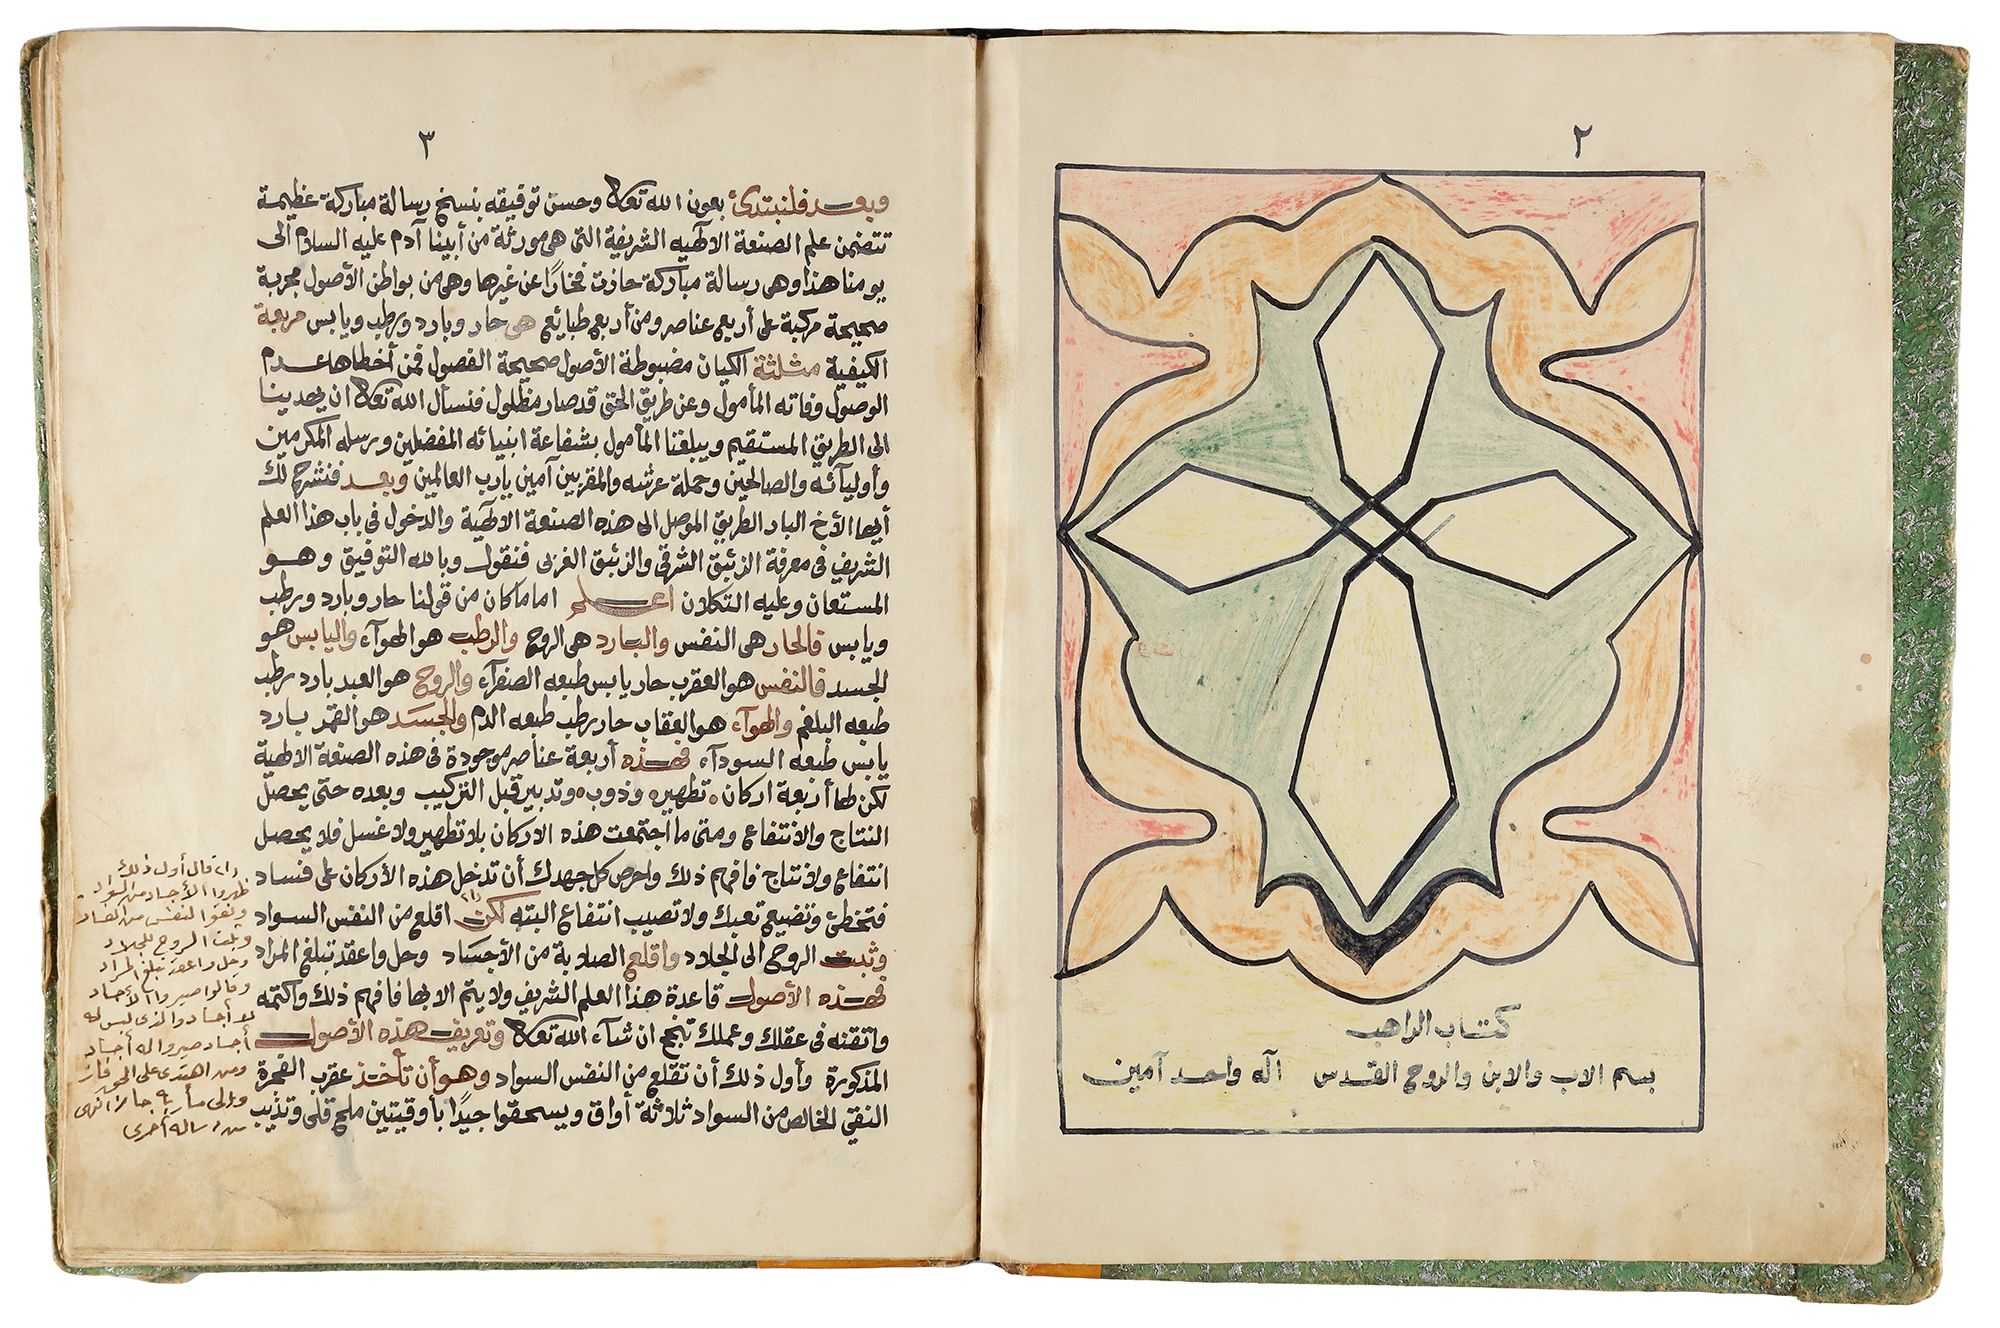 ٢
كتاب الراهب
بسم الاب والابن والروح القدس اله واحد آمين
٣
وبعد فلنبتدئ بعون الله تعالى وحسن توفيقه بنسخ رسالة مباركة عظيمة
تتضمن علم الصنعة الالهيه الشريفة التى هى مورثة من أبينا آدم عليه السلام الى
يومنا هذا وهى رسالة مباركة حازت فخارًا عن غيرها وهى من بواطن الأصول مجربة
صحيحة مركبة على أربع عناصر ومن أربع طبايع هى حار وبارد ورطب ويابس مربعة
الكيفية مثلثة الكيان مضبوطة الأصول صحيحة الفصول فمن أخطاها عدم
الوصول وفاته المأمول وعن طريق الحق قد صار مظلول فنسأل الله تعالى ان يهدينا
الى الطريق المستقيم ويبلغنا المأمول بشفاعة انبيائه المفضلين ورسله المكرمين
وأوليآئه والصالحين وحملة عرشه والمقربين آمين يارب العالمين وبعد فنشرح لك
أيها الأخ البار الطريق الموصل الى هذه الصنعة الالهية والدخول في باب هذا العلم
الشريف فى معرفة الزئبق الشرقى والزئبق الغربى فنقول وبالله التوفيق وهو
المستعان وعليه التكلان اعلم اما ماكان من قولنا حار وبارد ورطب
ويابس فالحار هى النفس والبارد هى الروح والرطب هو الهوآء واليابس هو
الجسد فالنفس هو العقرب حار يابس طبعه الصفرآء والروح هو العبد بارد رطب
طبعه البلغم والهوآء هو العقاب حار رطب طبعه الدم والجسد هو القمر بارد
يابس طبعه السودآء فهذه أربعة عناصر موجودة فى هذه الصنعة الالهية
لكن لها أربعة اركان تطهير وذوب وتدبير قبل التركيب وبعده حتى يحصل
النتاج والانتفاع ومتى ما اجتمعت هذه الاركان بلا تطهير ولا غسل فلا يحصل
انتفاع ولا نتاج فافهم ذلك واحرص كل جهدك أن تدخل هذه الأركان على فساد
فتخطئ وتضيع تعبك ولا تصيب انتفاع البته لكن (٢) اقلع من النفس السواد
وثبت الروح الى الجلاد واقلع الصلابة من الأجساد وحل واعقد تبلغ المراد
فهذه الأصول قاعدة هذا العلم الشريف ولا يتم الا بها فافهم ذلك واكتمه
واتقنه فى عقلك وعملك تنجح ان شآء الله تعالى وتعريف هذه الأصول
المذكورة وأول ذلك أن تقلع من النفس السواد وهو أن تأخذ عقرب الفجرة
النقي الخالص من السواد ثلاثة أواق ويسحقوا جيدًا بأوقيتين ملح قلى وتذيب
(٢) قال أول ذلك
طهروا الأجساد من السواد
ونقوا النفس من الفساد
الروح للجلاد
وحل واعقد تبلغ المراد
وقالوا صيروا الأجساد
لا أجساد والذى ليس له
أجساد صيروا له أجساد
ومن اهتدى على الحجر فاز
انتهى
من رسالة أخرى